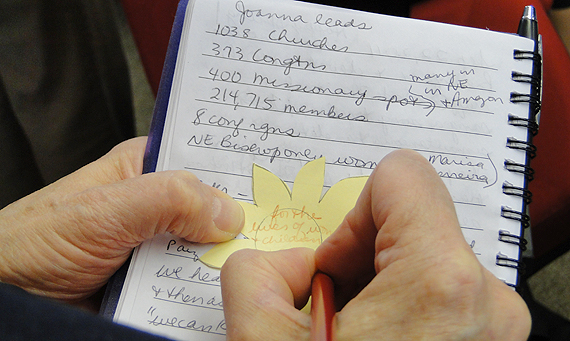 Joanna leads
1038 churches
373 Congtns
400 missionary pos
many in
in NE
+ Amazon
214,715 members
8 conf rgns
NE Bishop only wom
Marisa
for the
lives of
+ children
we hea
+ then
"we can